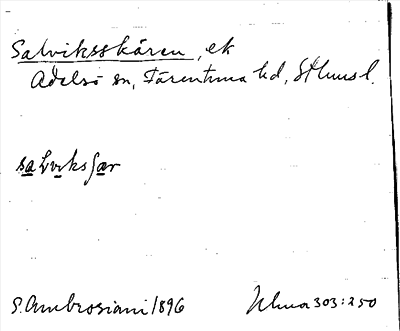 Salviksskären, ek
Adelsö sn, Färentuna hd, Sthms l.
salviksʃar
S. Ambrosiani 1896 Ulma 303:250